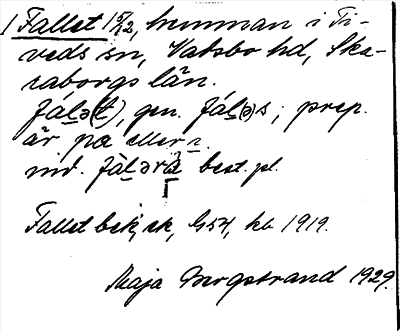 1 Fallet 15/12, hemman i Ti-
veds sn, Vatsbo hd, Ska-
raborgs län.
fal̲ə(t), gen. fál̲(ə)s; prep.
är på eller i.
inv. fàl̲əra best. pl.
Fallet bek, ek, G54, kb 1919.
Maja Bergstrand 1929.